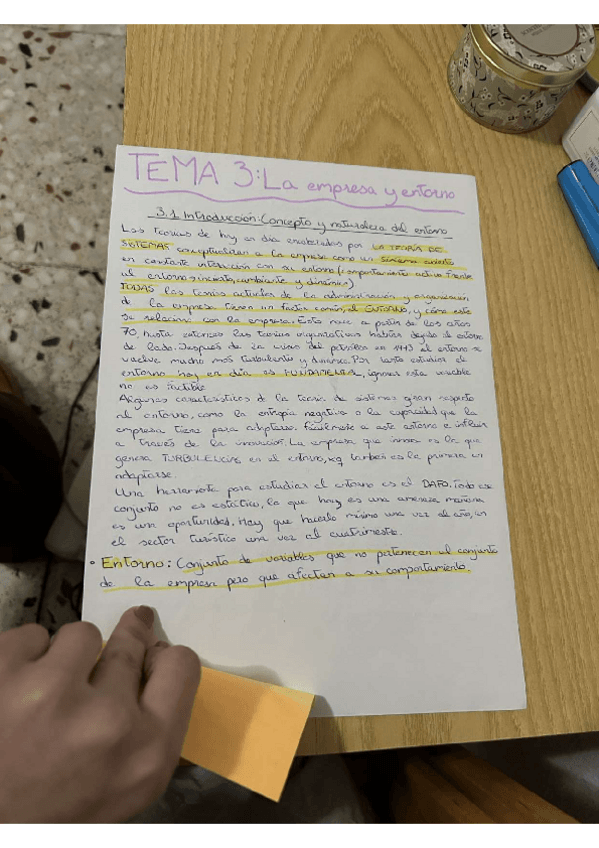 TEMA 3: La empresa y entorno
3.1 Introducción: Concepto y naturaleza del entorno
Las teorías de hoy en día englobadas por LA TEORÍA DE
SISTEMAS conceptualizan a la empresa como un sistema abierto
en constante interacción con su entorno (comportamiento activo frente
al entorno incierto, cambiante y dinámico)
TODAS las teorías actuales de la administración y organización
de la empresa tienen un factor común, el ENTORNO, y cómo este
se relaciona con la empresa. Esto nace a partir de los años
70, hasta entonces las teorías organizativas habían dejado el entorno
de lado. Después de la crisis del petróleo en 1973 el entorno se
vuelve mucho más turbulento y dinámico. Por tanto estudiar el
entorno hoy en día es FUNDAMENTAL, ignorar esta variable
no es factible
Algunas características de la teoría de sistemas giran respecto
al entorno, como la entropía negativa o la capacidad que la
empresa tiene para adaptarse fácilmente a este entorno e influir
a través de la innovación. La empresa que innova es la que
genera TURBULENCIAS en el entorno, xq también es la primera en
adaptarse.
Una herramienta para estudiar el entorno es el DAFO. Todo ese
conjunto no es estático, lo que hoy es una amenaza, mañana
es una oportunidad. Hay que hacerlo mínimo una vez al año, en
el sector turístico una vez al cuatrimestre.
• Entorno: Conjunto de variables que no pertenecen al conjunto
de la empresa pero que afectan a su comportamiento.